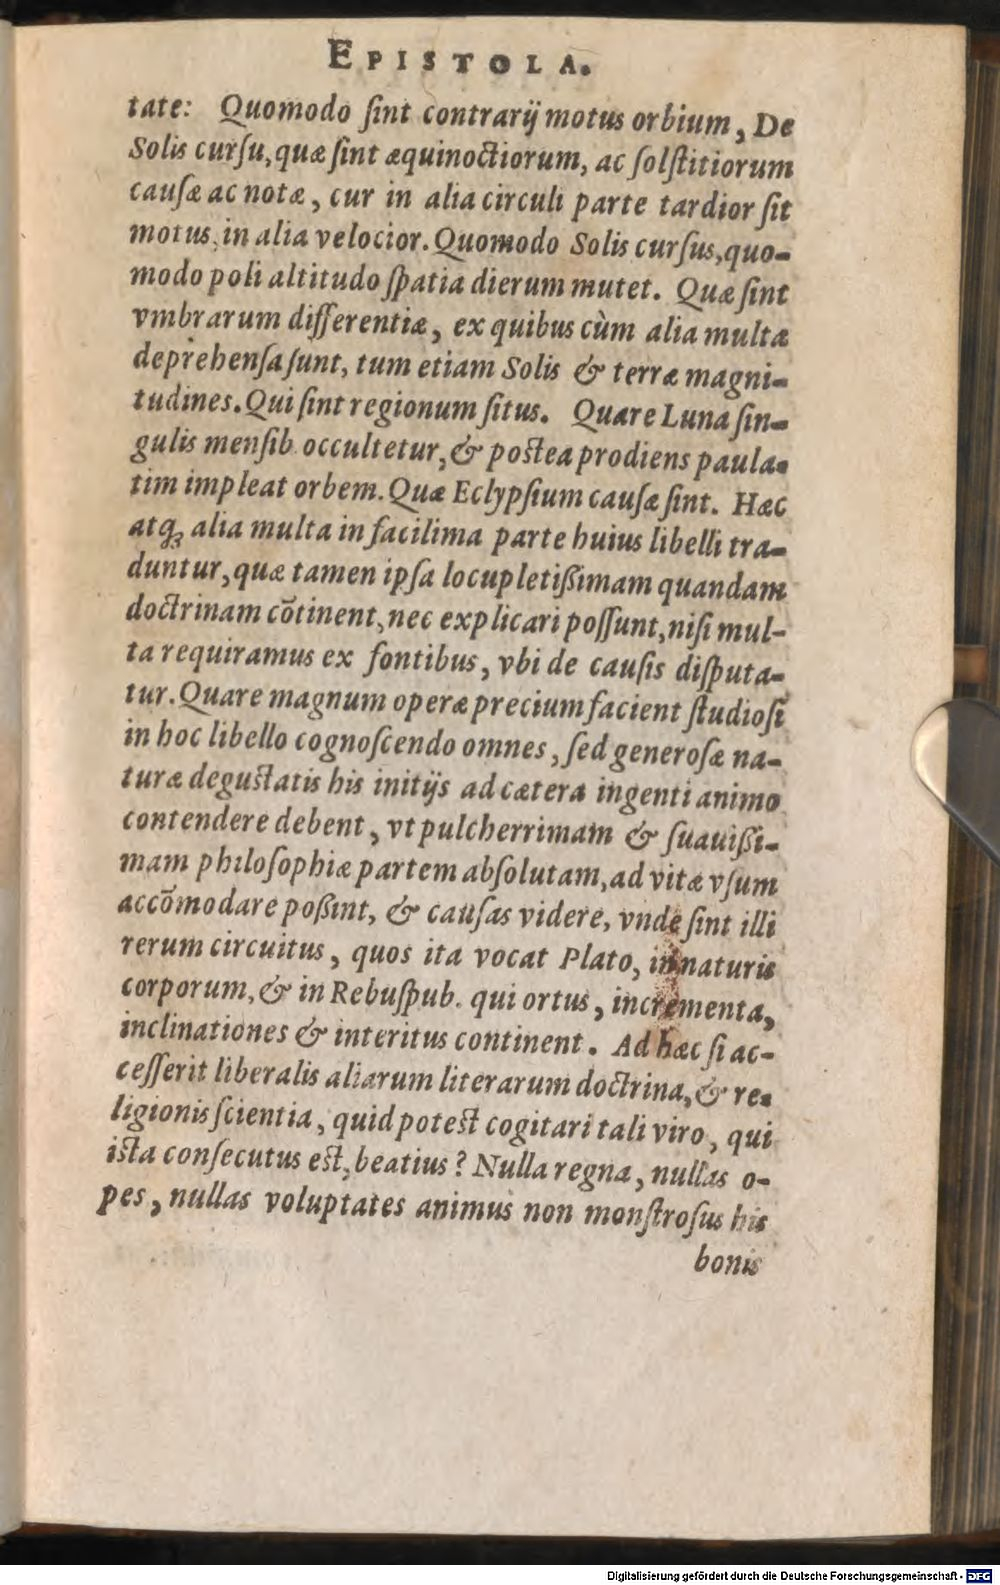 EPISTOLA.
tate: Quomodo ſint contrarij motus orbium, De
Solis curſu, quæ ſint æquinoctiorum, ac ſolſtitiorum
cauſæ ac notæ, cur in alia circuli parte tardior ſit
motus, in alia velocior. Quomodo Solis curſus, quo-
modo poli altitudo ſpatia dierum mutet. Quæ ſint
vmbrarum differentiæ, ex quibus cùm alia multa
deprehenſa ſunt, tum etiam Solis & terræ magni-
tudines. Qui ſint regionum ſitus. Quare Luna ſin-
gulis menſib. occultetur, & poſtea prodiens paula-
tim impleat orbem. Quæ Eclypſium cauſæ ſint. Hæc
atq; alia multa in facilima parte huius libelli tra-
duntur, quæ tamen ipſa locupletißimam quandam
doctrinam cōtinent, nec explicari poſſunt, niſi mul-
ta requiramus ex fontibus, vbi de cauſis diſputa-
tur. Quare magnum operæ precium facient ſtudioſi
in hoc libello cognoſcendo omnes, ſed generoſæ na-
turæ deguſtatis his initijs ad cætera ingenti animo
contendere debent, vt pulcherrimam & ſuauißi-
mam philoſophiæ partem abſolutam, ad vitæ vſum
accōmodare poßint, & cauſas videre, vnde ſint illi
rerum circuitus, quos ita vocat Plato, in naturis
corporum, & in Rebuſpub. qui ortus, incrementa,
inclinationes & interitus continent. Ad hæc ſi ac-
ceſſerit liberalis aliarum literarum doctrina, & re-
ligionis ſcientia, quid poteſt cogitari tali viro, qui
iſta conſecutus eſt, beatius? Nulla regna, nullas o-
pes, nullas voluptates animus non monſtroſus his
bonis
Digitalisierung gefördert durch die Deutsche Forschungsgemeinschaft - DFG